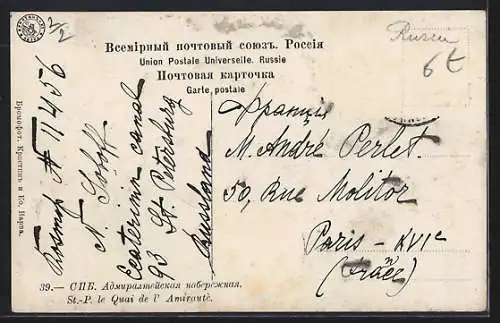 2/2
Russu
6t
Всемірный почтовый союзъ. Россія
Union Postale Universelle. Russie
Почтовая карточка
Carte postale
Франція
M. André Perlet.
50, Rue Molitor
Paris - XVIe
Rossmop # 11456
N. Soloff
Ecaterinin canal
93 St. Petersburg
Russland
Бромофот. Кристинъ и Ко, Нарва.
39.— СПБ. Адмиралтейская набережная.
St.-P. le Quai de l' Amirauté.